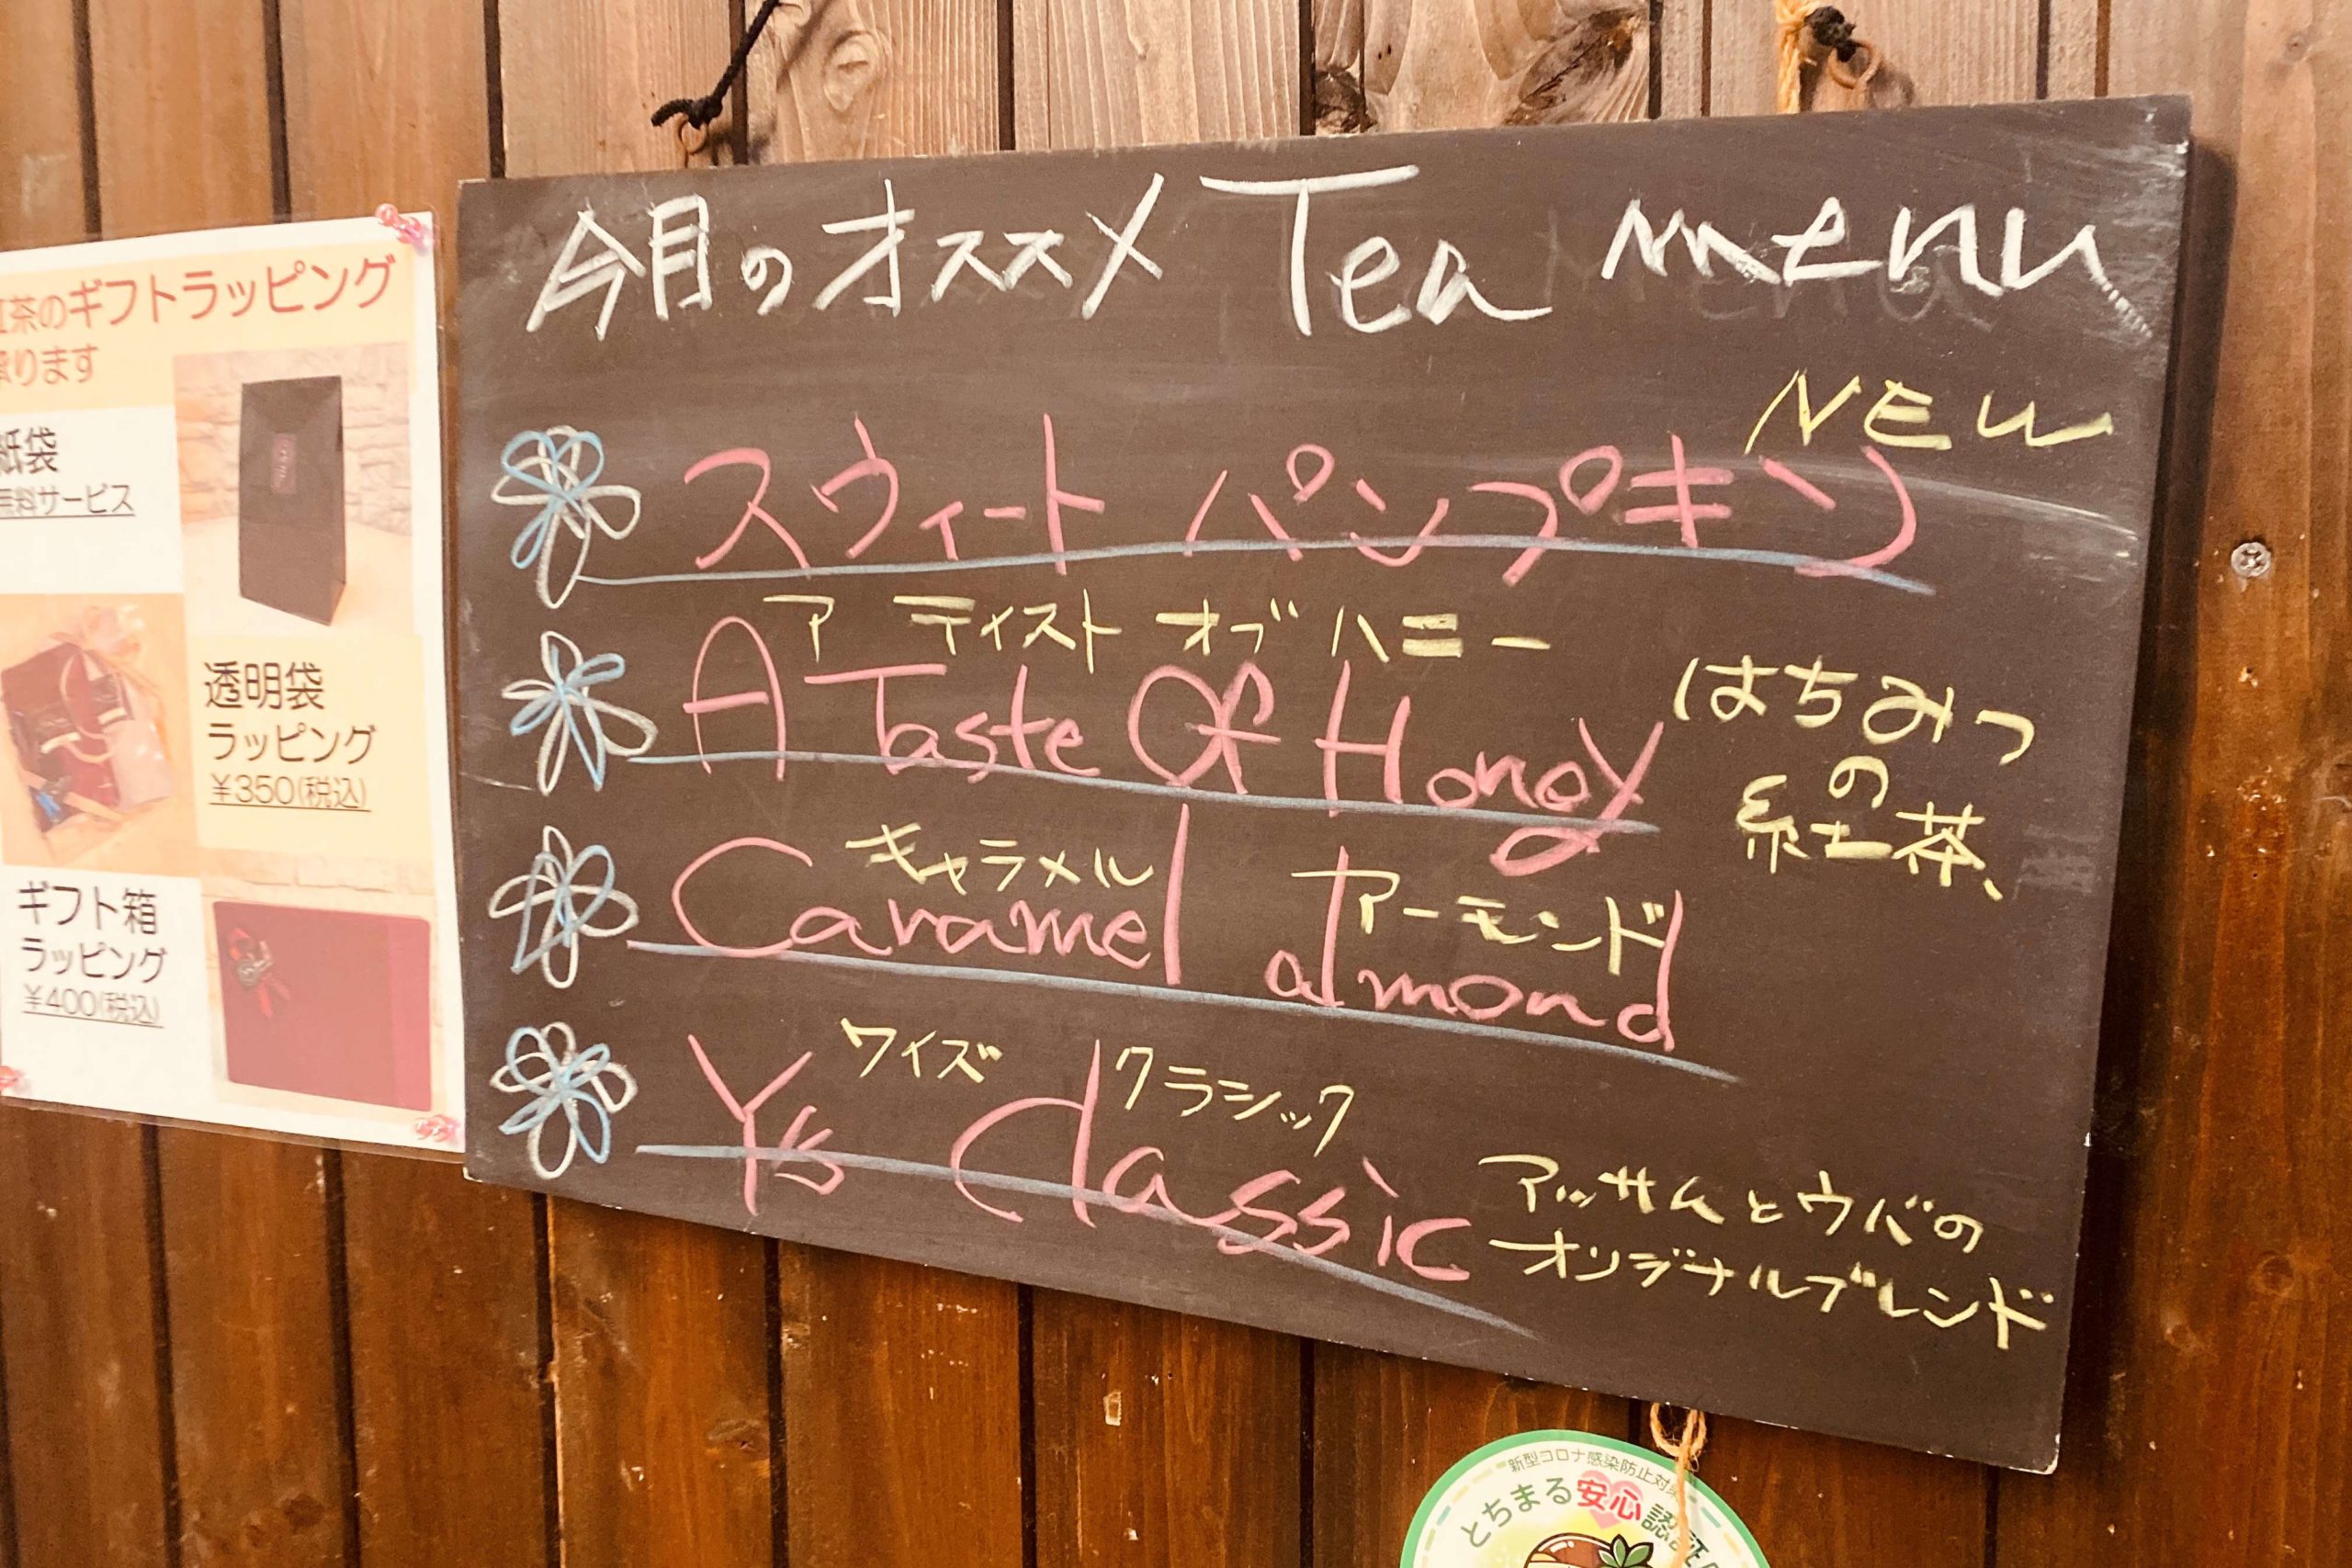 今月のオススメ Tea menu
NEW
スウィート パンプキン
ア ーティスト オブ ハニー
A Taste Of Honey
はちみつ
の
紅茶、
キャラメル アーモンド
Caramel almond
ワイズ クラシック
Y's Classic
アッサムとウバの
オリジナルブレンド
紅茶のギフトラッピング
承ります
紙袋
無料サービス
透明袋
ラッピング
¥350(税込)
ギフト箱
ラッピング
¥400(税込)
新型コロナ感染防止対
とちまる安心認証